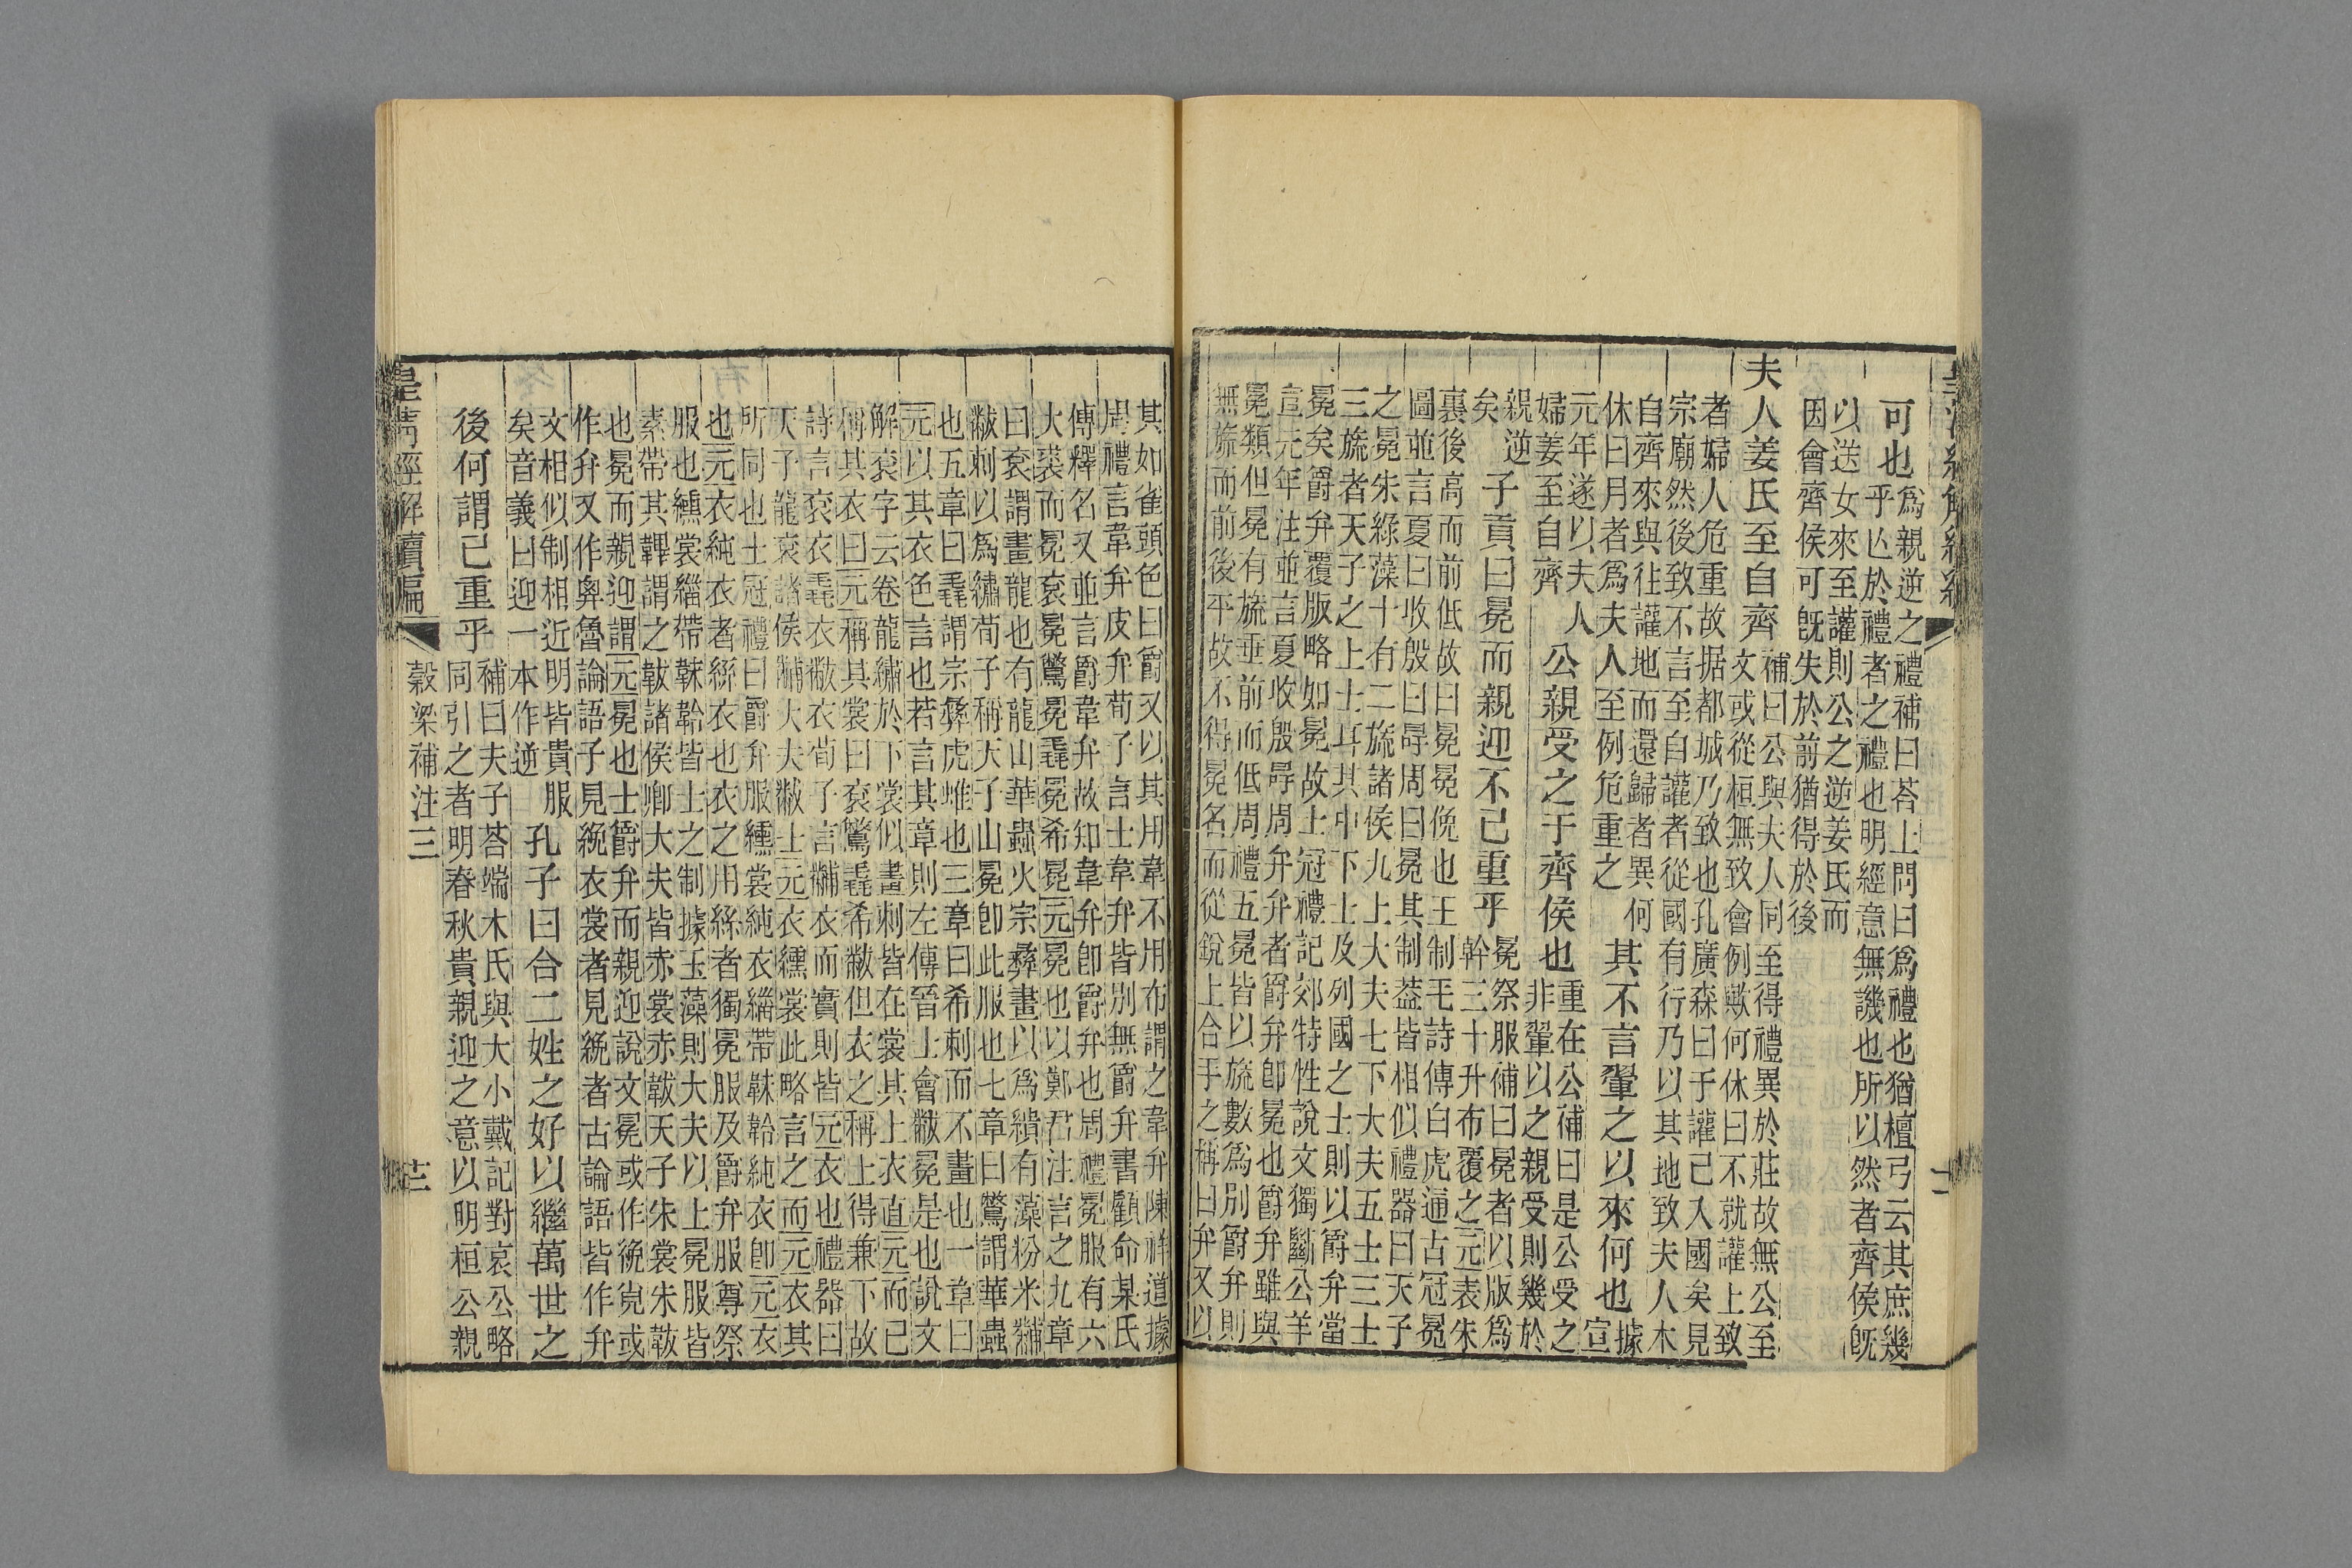 可也
爲親逆之禮補曰荅上問曰爲禮也猶檀弓云其庶幾
乎亾於禮者之禮也明經意無譏也所以然者齊侯旣
以送女來至讙則公之逆姜氏而
因會齊侯可旣失於前猶得於後
夫人姜氏至自齊
補曰公與夫人同至得禮異於莊故無公至
文或從桓無致會例歟何休曰不就讙上致
者婦人危重故据都城乃致也孔廣森曰于讙已入國矣見
宗廟然後致不言至自讙者從國有行乃以其地致夫人木
自齊來與往讙地而還歸者異何
休曰月者爲夫人至例危重之
其不言翬之以來何也
據
宣
元年遂以夫人
婦姜至自齊
公親受之于齊侯也
重在公補曰是公受之
非翬以之親受則幾於
親逆
矣
子貢曰冕而親迎不已重乎
冕祭服補曰冕者以版爲
幹三十升布覆之元表朱
裏後高而前低故曰冕冕俛也王制毛詩傳白虎通古冠冕
圖並言夏曰收殷曰冔周曰冕其制葢皆相似禮器曰天子
之冕朱綠藻十有二旒諸侯九上大夫七下大夫五士三士
三旒者天子之上士耳其中下士及列國之士則以爵弁當
冕矣爵弁覆版略如冕故士冠禮記郊特牲說文獨斷公羊
宣元年注並言夏收殷冔周弁弁者爵弁卽冕也爵弁雖與
冕類但冕有旒垂前而低周禮五冕皆以旒數爲別爵弁則
無旒而前後平故不得冕名而從銳上合手之稱曰弁又以
其如雀頭色曰爵又以其用韋不用布謂之韋弁陳祥道據
周禮言韋弁皮弁荀子言士韋弁皆別無爵弁書顧命某氏
傳釋名又並言爵韋弁故知韋弁卽爵弁也周禮冕服有六
大裘而冕衮冕鷩冕毳冕希冕元冕也以鄭君注言之九章
曰衮謂畫龍也有龍山華蟲火宗彝畫以爲繢有藻粉米黼
黻刺以爲繡荀子稱天子山冕卽此服也七章曰鷩謂華蟲
也五章曰毳謂宗彝虎蜼也三章曰希刺而不畫也一章曰
元以其衣色言也若言其章則左傳晉上會黻冕是也說文
解衮字云卷龍繡於下裳似畫刺皆在裳其上衣直元而已
稱其衣曰元稱其裳曰衮鷩毳希黻但衣之稱上得兼下故
詩言衮衣毳衣黻衣荀子言黼衣而實則皆元衣也禮器曰
天子龍衮諸侯黼大夫黻士元衣纁裳此略言之而元衣其
所同也士冠禮曰爵弁服纁裳純衣緇帶韎韐純衣卽元衣
也元衣純衣者絲衣也衣之用絲者獨冕服及爵弁服尊祭
服也纁裳緇帶韎韐皆士之制據玉藻則大夫以上冕服皆
素帶其韠謂之韍諸侯卿大夫皆赤裳赤韍天子朱裳朱韍
也冕而親迎謂元冕也士爵弁而親迎說文冕或作絻㝸或
作弁又作㝸魯論語子見絻衣裳者見絻者古論語皆作弁
文相似制相近明皆貴服
矣音義曰迎一本作逆
孔子曰合二姓之好以繼萬世之
後何謂已重乎
補曰夫子荅端木氏與大小戴記對哀公略
同引之者明春秋貴親迎之意以明桓公親
皇淸經解續編
穀梁補注三